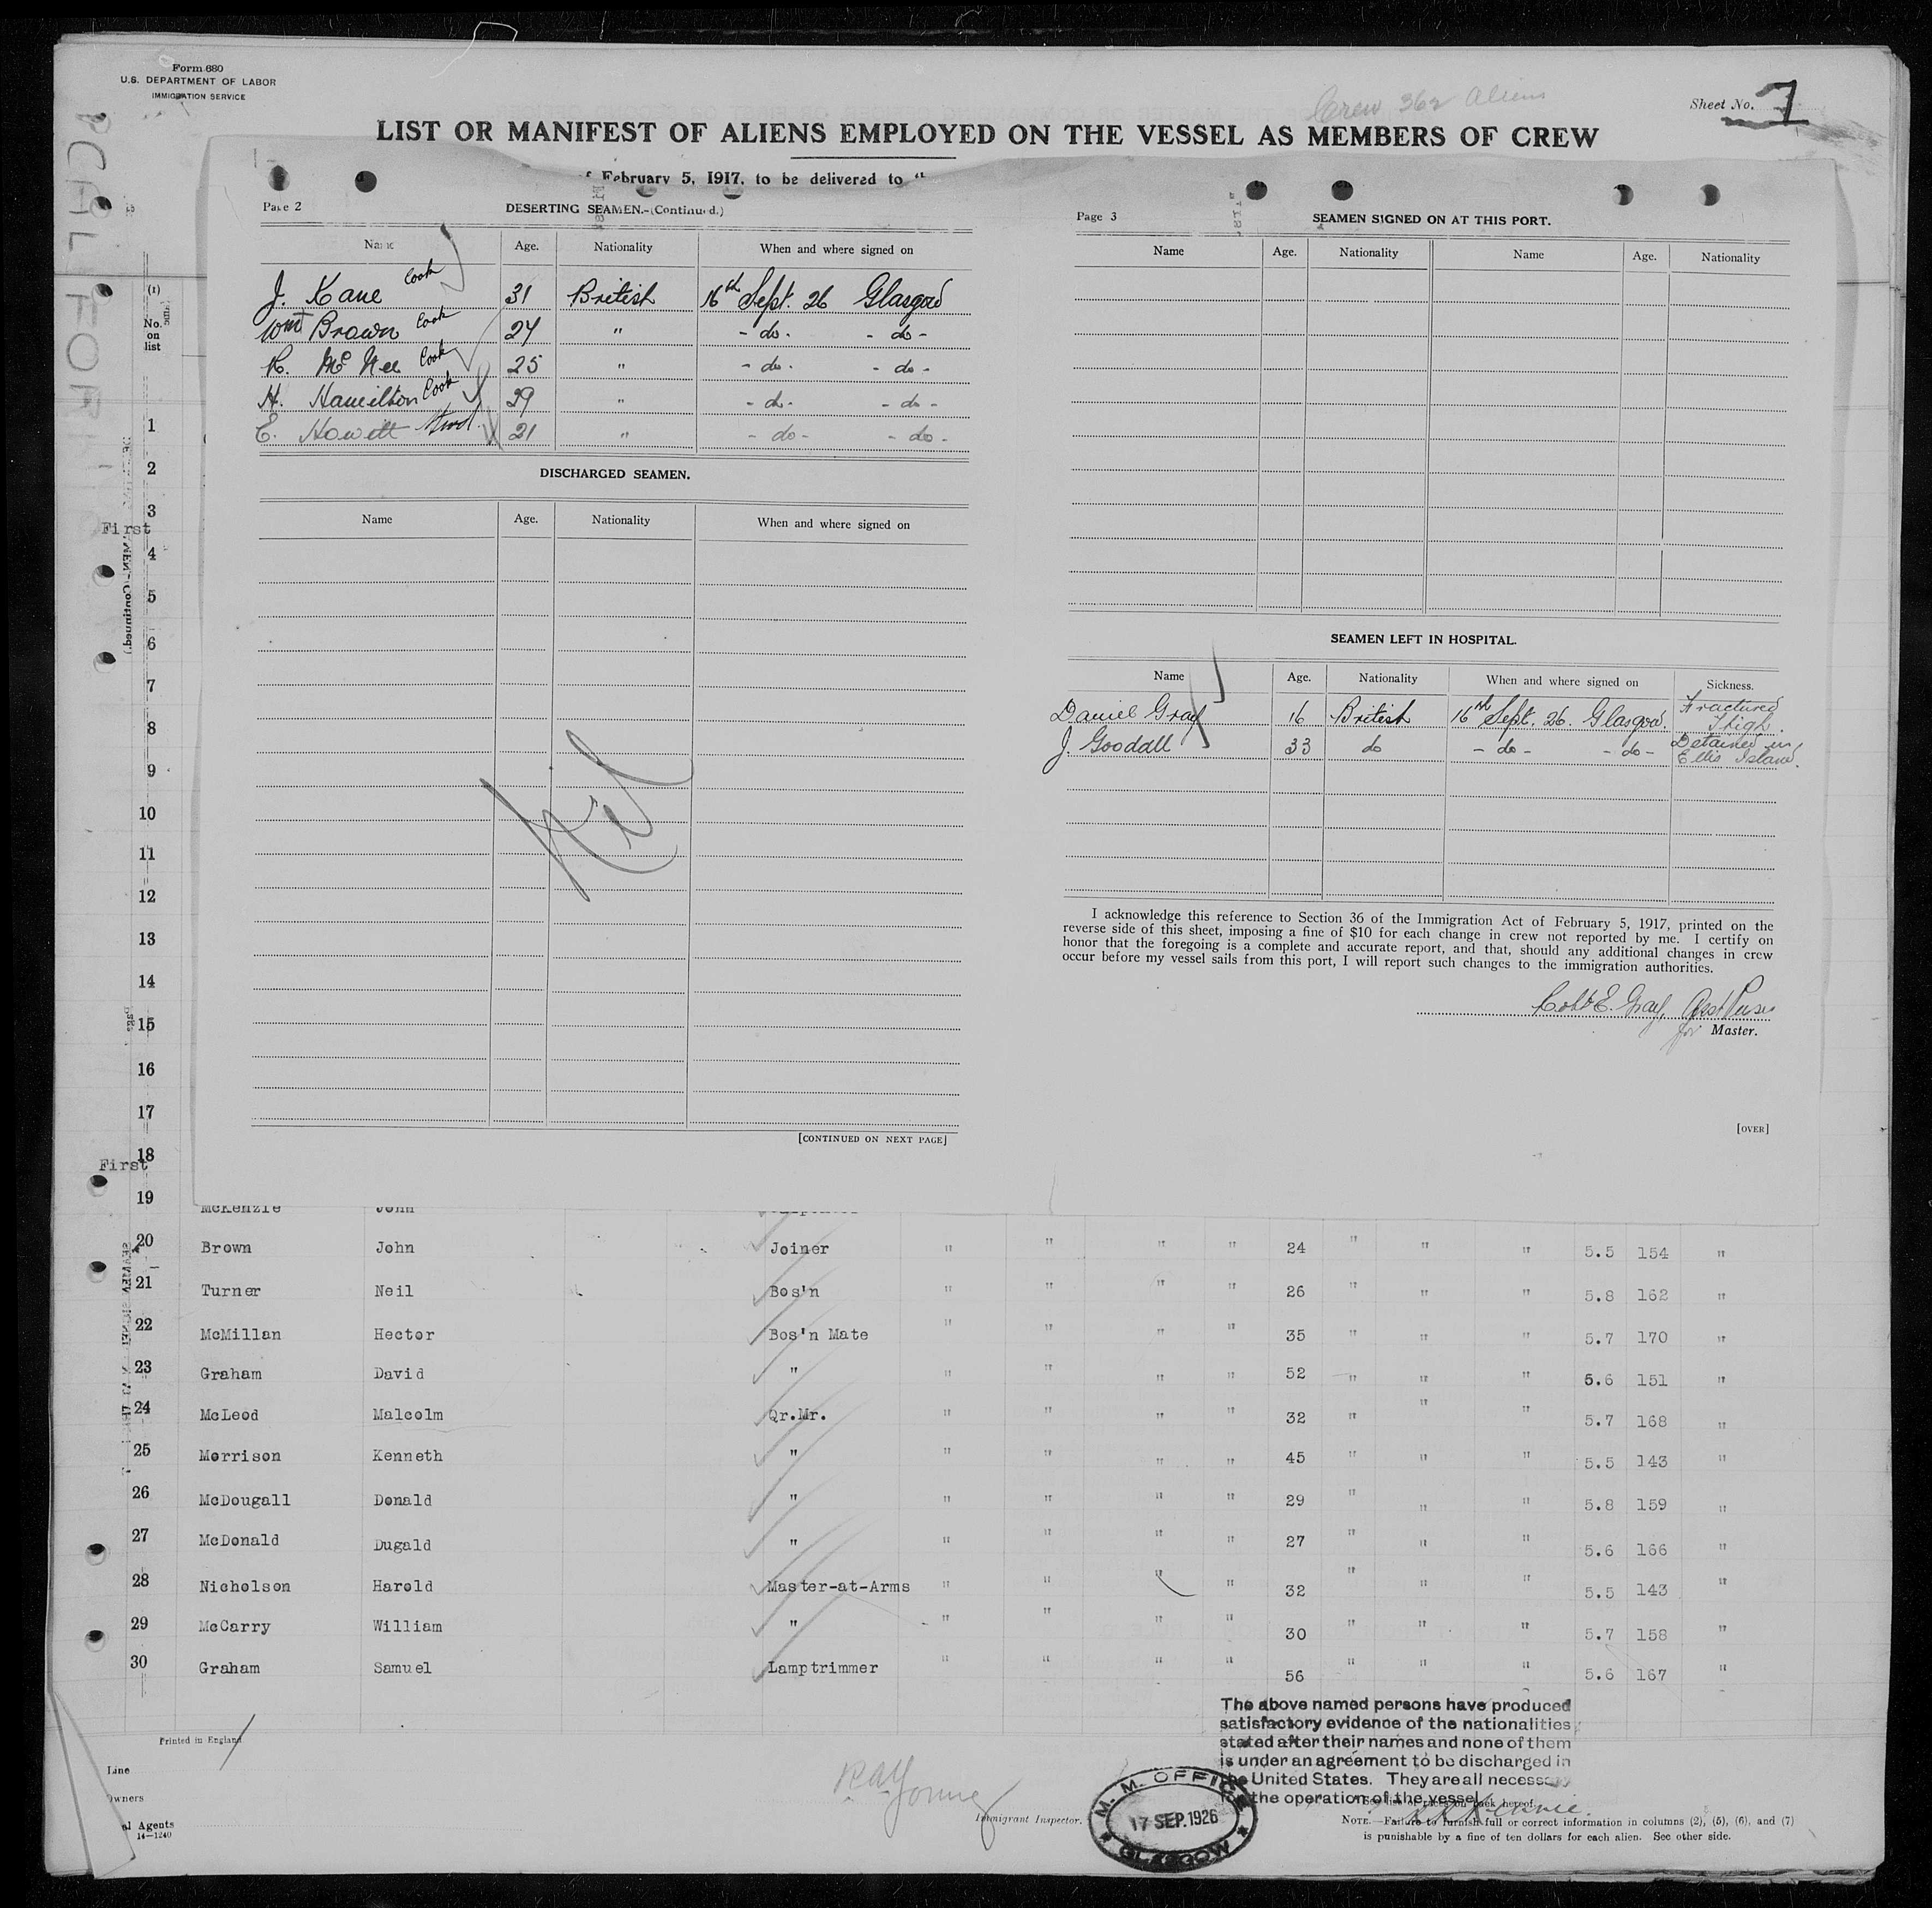 Form 680
U.S. DEPARTMENT OF LABOR
IMMIGRATION SERVICE
Crew 362 Aliens
Sheet No. 7
LIST OR MANIFEST OF ALIENS EMPLOYED ON THE VESSEL AS MEMBERS OF CREW
February 5, 1917, to be delivered to
Page 2
DESERTING SEAMEN.-(Continued.)
Name Age. Nationality When and where signed on
J. Kane Cook 31 British 16th Sept. 26 Glasgow
Wm Brown Cook 24 " - do - - do -
R. McNee Cook 25 " - do - - do -
H. Hamilton Cook 29 " - do - - do -
E. Howett Stwd. 21 " - do - - do -
DISCHARGED SEAMEN.
Name Age. Nationality When and where signed on
Nil
[CONTINUED ON NEXT PAGE]
Page 3
SEAMEN SIGNED ON AT THIS PORT.
Name Age. Nationality Name Age. Nationality
SEAMEN LEFT IN HOSPITAL.
Name Age. Nationality When and where signed on Sickness.
Daniel Gray 16 British 16th Sept. 26. Glasgow. Fractured Thigh.
J. Goodall 33 do - do - - do - Detained in Ellis Island.
I acknowledge this reference to Section 36 of the Immigration Act of February 5, 1917, printed on the
reverse side of this sheet, imposing a fine of $10 for each change in crew not reported by me. I certify on
honor that the foregoing is a complete and accurate report, and that, should any additional changes in crew
occur before my vessel sails from this port, I will report such changes to the immigration authorities.
E. Gray, Asst Purser
for Master.
[OVER]
(1)
No.
on
list
1
2
3
First
4
5
6
7
8
9
10
11
12
13
14
15
16
17
18
First
19 McKenzie John
20 Brown John Joiner " " " " 24 " " " 5.5 154 "
21 Turner Neil Bos'n " " " " 26 " " " 5.8 162 "
22 McMillan Hector Bos'n Mate " " " " 35 " " " 5.7 170 "
23 Graham David " " " " " 52 " " " 5.6 151 "
24 McLeod Malcolm Qr.Mr. " " " " 32 " " " 5.7 168 "
25 Morrison Kenneth " " " " " 45 " " " 5.5 143 "
26 McDougall Donald " " " " " 29 " " " 5.8 159 "
27 McDonald Dugald " " " " " 27 " " " 5.6 166 "
28 Nicholson Harold Master-at-Arms " " " " 32 " " " 5.5 143 "
29 McCarry William " " " " " 30 " " " 5.7 158 "
30 Graham Samuel Lamptrimmer " " " " 56 " " " 5.6 167 "
The above named persons have produced
satisfactory evidence of the nationalities
stated after their names and none of them
is under an agreement to be discharged in
the United States. They are all necessary
for the operation of the vessel
Printed in England
Line
Owners
Agents
14-1240
Immigrant Inspector.
M. M. OFFICE
17 SEP. 1926
GLASGOW
NOTE.—Failure to furnish full or correct information in columns (2), (5), (6), and (7)
is punishable by a fine of ten dollars for each alien. See other side.